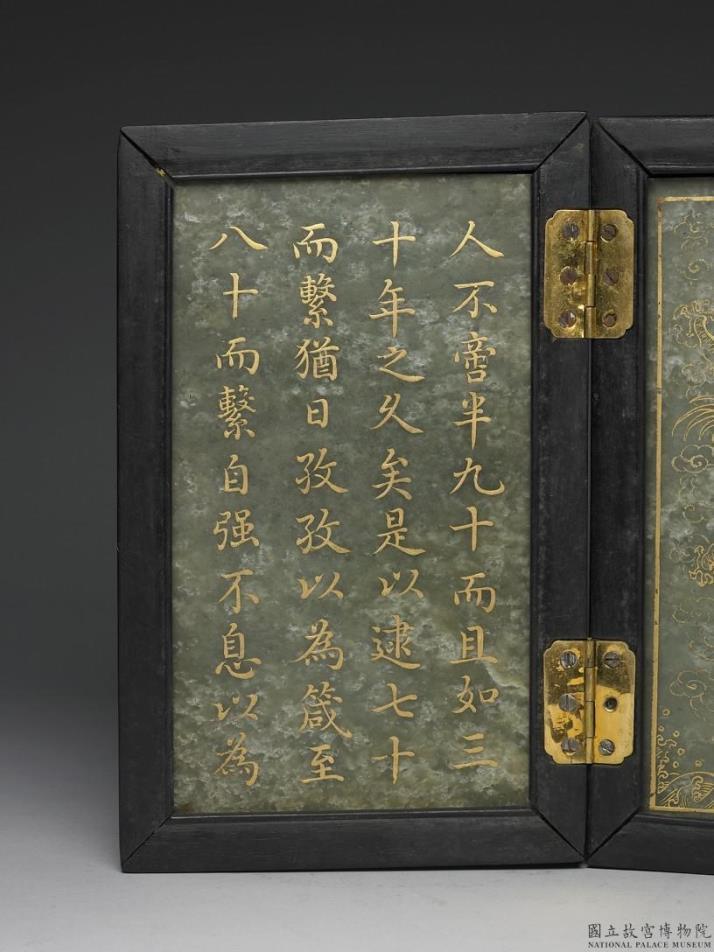 人不啻半九十而且如三
十年之久矣是以逮七十
而繫猶日孜孜以為箴至
八十而繫自强不息以為
國立故宮博物院
NATIONAL PALACE MUSEUM